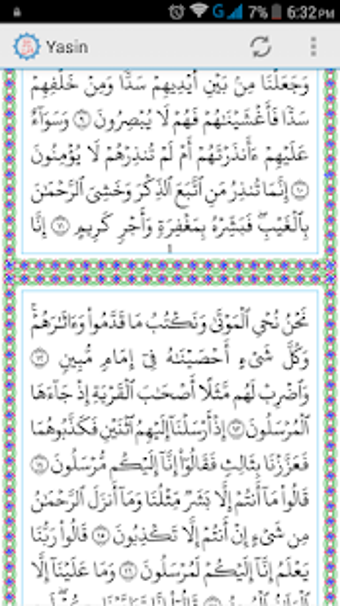 7% 6:32PM
Yasin
وَجَعَلْنَا مِنۢ بَيْنِ أَيْدِيهِمْ سَدًّا وَمِنْ خَلْفِهِمْ
سَدًّا فَأَغْشَيْنَٰهُمْ فَهُمْ لَا يُبْصِرُونَ ﴿٩﴾ وَسَوَآءٌ
عَلَيْهِمْ ءَأَنذَرْتَهُمْ أَمْ لَمْ تُنذِرْهُمْ لَا يُؤْمِنُونَ
﴿١٠﴾ إِنَّمَا تُنذِرُ مَنِ ٱتَّبَعَ ٱلذِّكْرَ وَخَشِىَ ٱلرَّحْمَٰنَ
بِٱلْغَيْبِ ۖ فَبَشِّرْهُ بِمَغْفِرَةٍ وَأَجْرٍ كَرِيمٍ ﴿١١﴾ إِنَّا
نَحْنُ نُحْىِ ٱلْمَوْتَىٰ وَنَكْتُبُ مَا قَدَّمُوا۟ وَءَاثَٰرَهُمْ ۚ
وَكُلَّ شَىْءٍ أَحْصَيْنَٰهُ فِىٓ إِمَامٍ مُّبِينٍ ﴿١٢﴾
وَٱضْرِبْ لَهُم مَّثَلًا أَصْحَٰبَ ٱلْقَرْيَةِ إِذْ جَآءَهَا
ٱلْمُرْسَلُونَ ﴿١٣﴾ إِذْ أَرْسَلْنَآ إِلَيْهِمُ ٱثْنَيْنِ فَكَذَّبُوهُمَا
فَعَزَّزْنَا بِثَالِثٍ فَقَالُوٓا۟ إِنَّآ إِلَيْكُم مُّرْسَلُونَ ﴿١٤﴾
قَالُوا۟ مَآ أَنتُمْ إِلَّا بَشَرٌ مِّثْلُنَا وَمَآ أَنزَلَ ٱلرَّحْمَٰنُ
مِن شَىْءٍ إِنْ أَنتُمْ إِلَّا تَكْذِبُونَ ﴿١٥﴾ قَالُوا۟ رَبُّنَا
يَعْلَمُ إِنَّآ إِلَيْكُمْ لَمُرْسَلُونَ ﴿١٦﴾ وَمَا عَلَيْنَآ إِلَّا